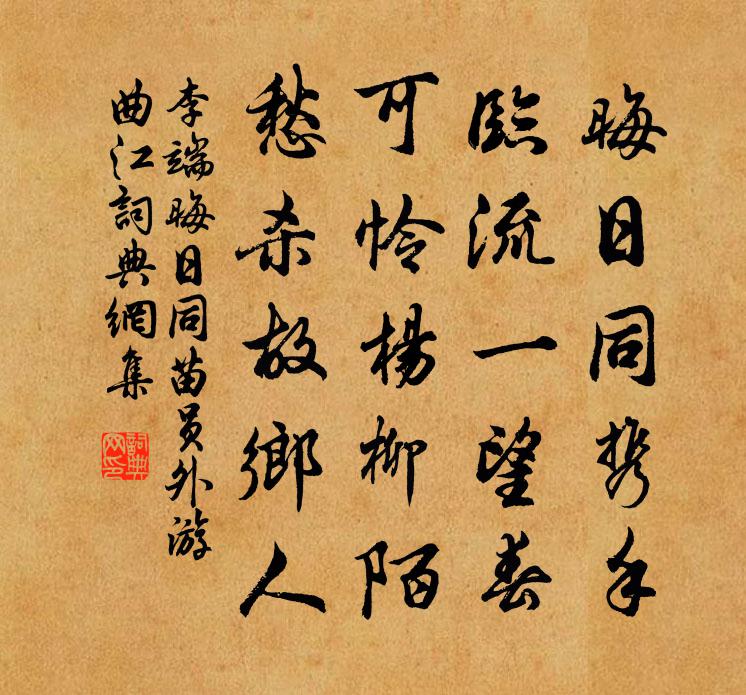 晦日同携手
臨流一望春
可怜楊柳陌
愁杀故鄉人
李端晦日同苗员外游
曲江詞典網集
詞典
网印